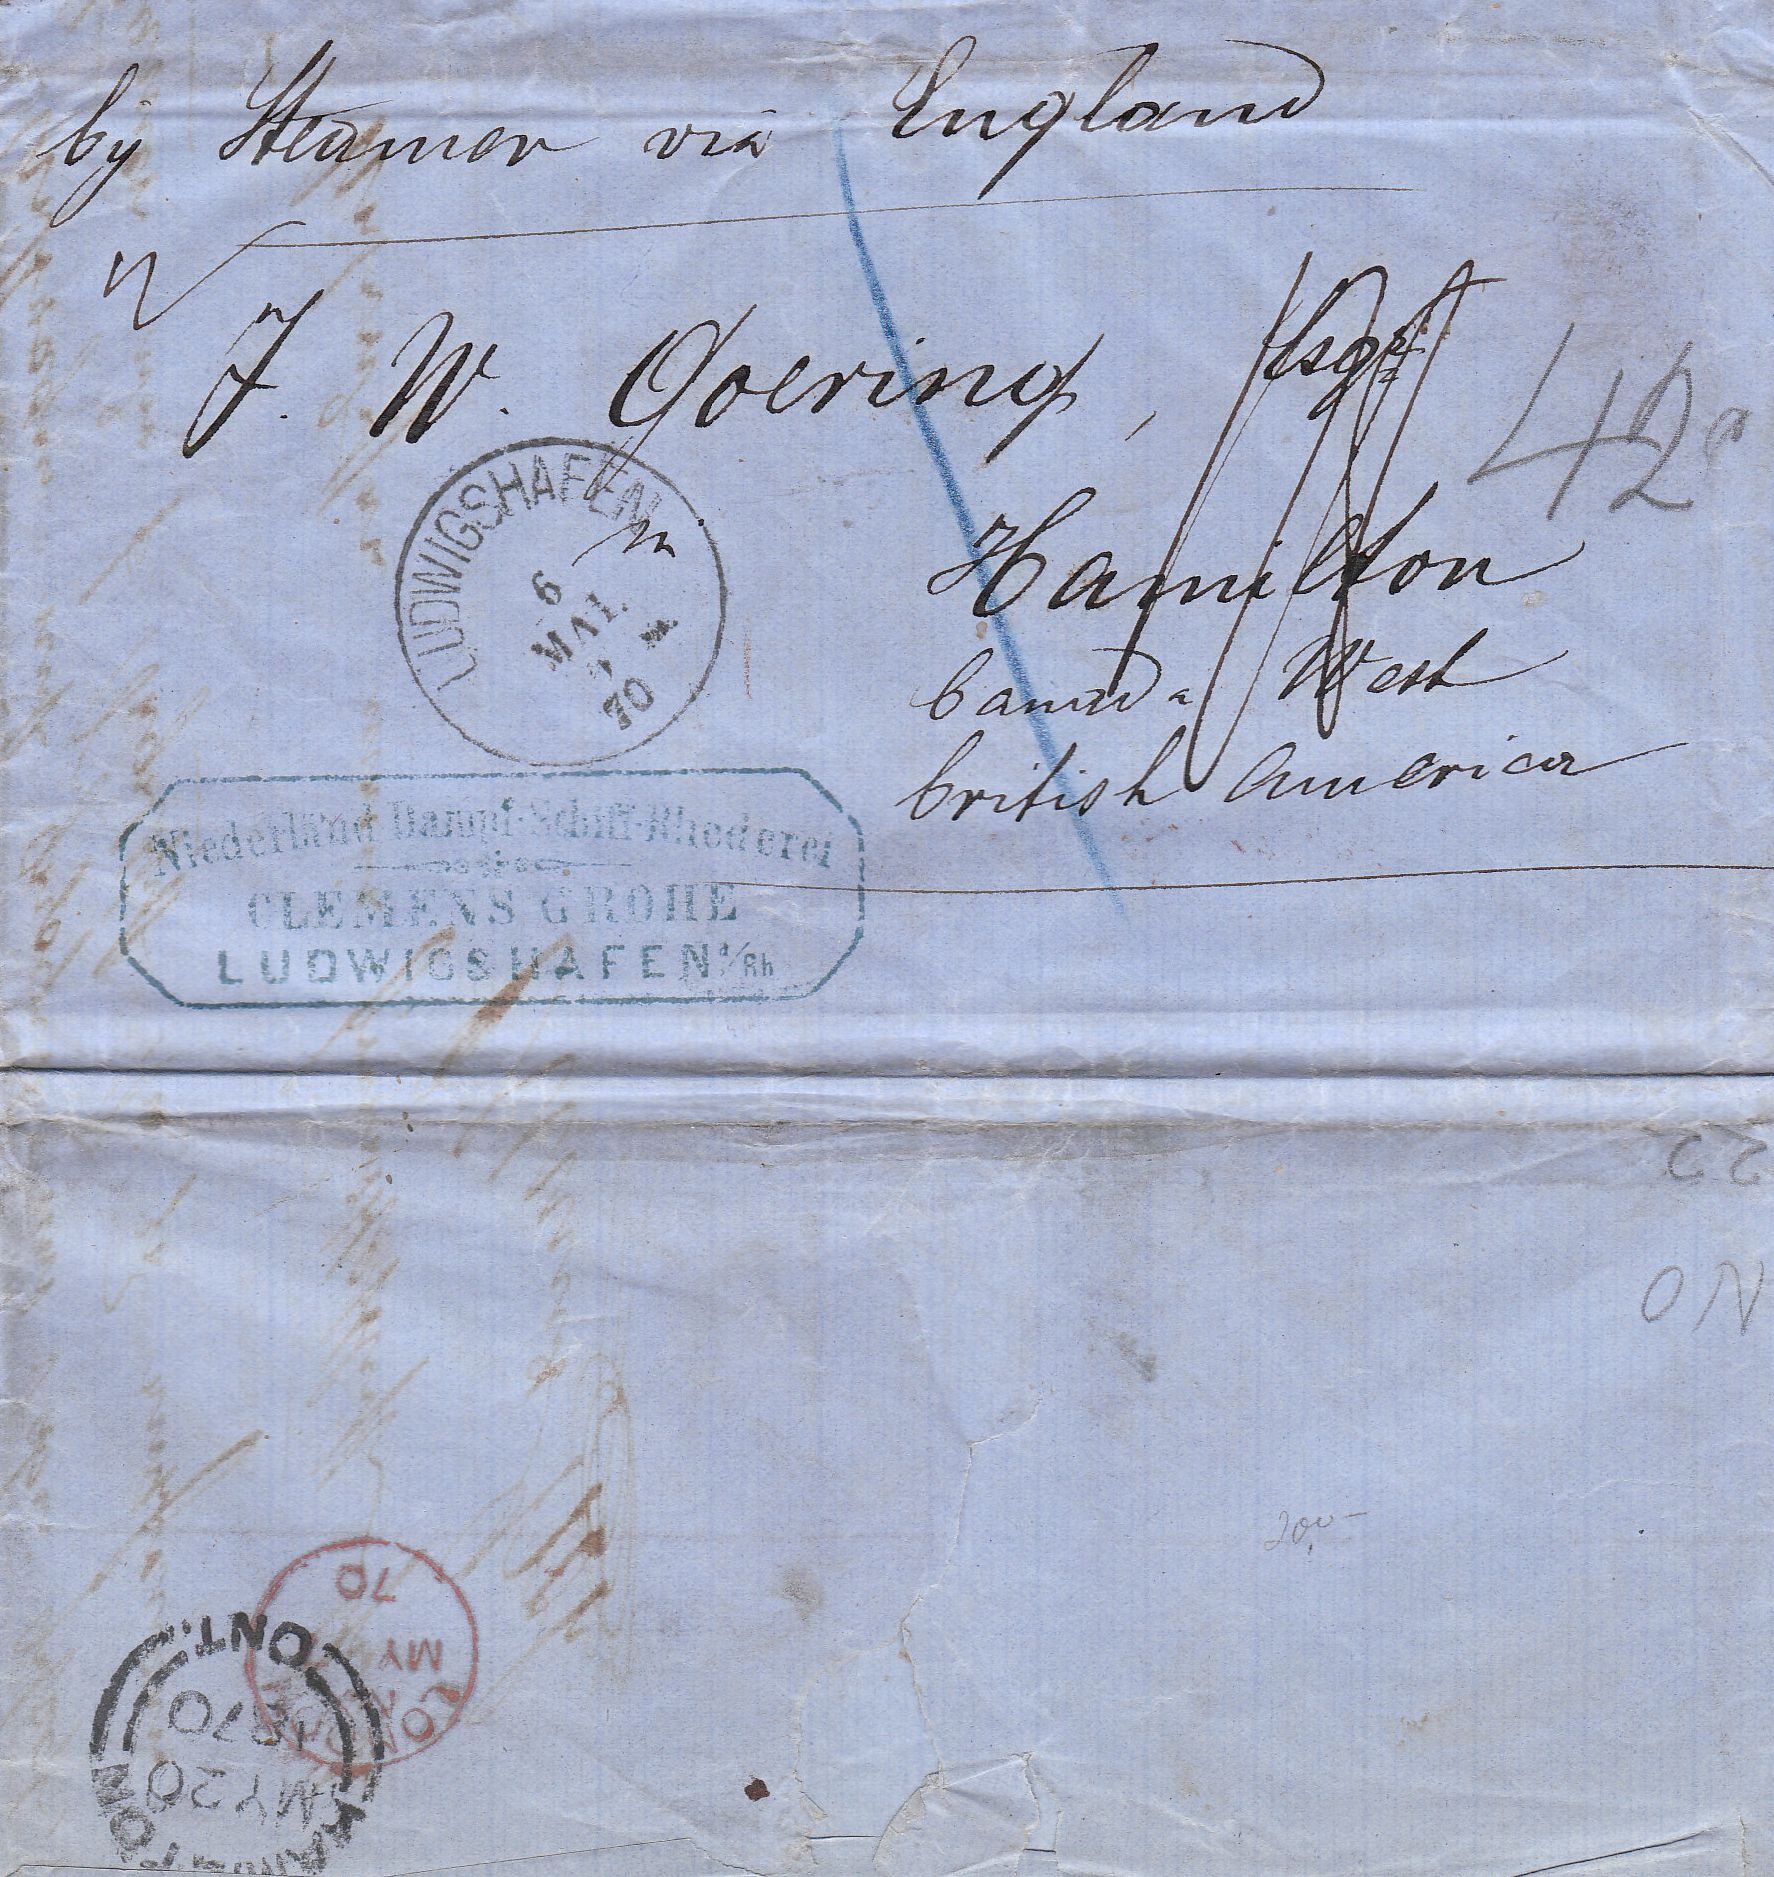 by Steamer via England
J. W. Goering, Esqr
42c
in
Hamilton
Canada West
british America
LUDWIGSHAFEN
6
MAI.
Niederländ Dampf-Schiff-Rhederei
CLEMENS GROHE
LUDWIGSHAFEN a/Rh
22
ON
200.-
LONDON
MY
70
HAMILTON
MY 20
1870
ONT.